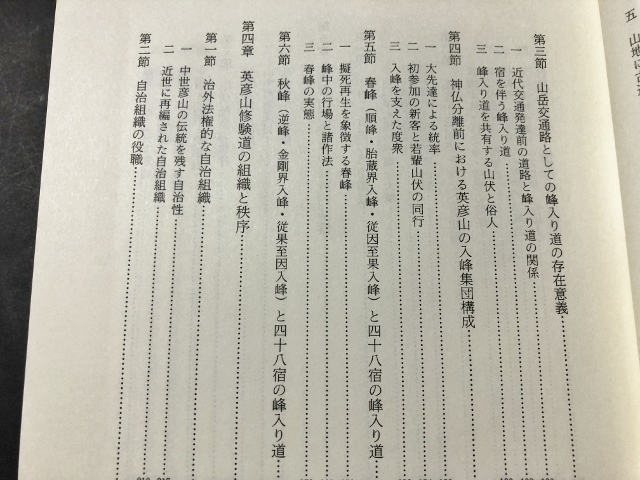 五　山
第三節　山岳交通路としての峰入り道の存在意義
一　近代交通発達前の道路と峰入り道の関係
二　宿を伴う峰入り道
三　峰入り道を共有する山伏と俗人
第四節　神仏分離前における英彦山の入峰集団構成
一　大先達による統率
二　初参加の新客と若輩山伏の同行
三　入峰を支えた度衆
第五節　春峰（順峰・胎蔵界入峰・従因至果入峰）と四十八宿の峰入り道
一　擬死再生を象徴する春峰
二　峰中の行場と諸作法
三　春峰の実態
第六節　秋峰（逆峰・金剛界入峰・従果至因入峰）と四十八宿の峰入り道
第四章　英彦山修験道の組織と秩序
第一節　治外法権的な自治組織
一　中世彦山の伝統を残す自治性
二　近世に再編された自治組織
第二節　自治組織の役職